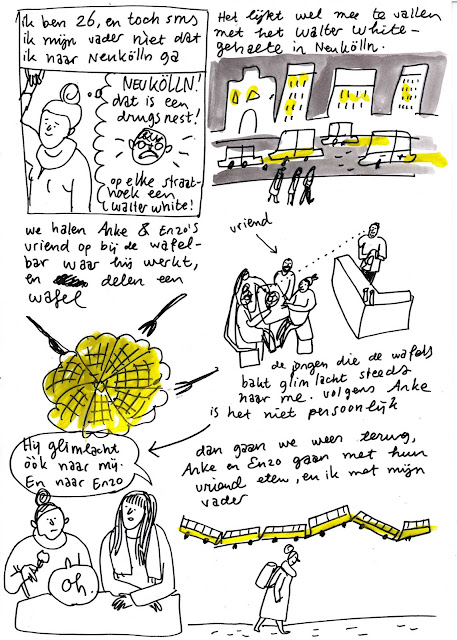 ik ben 26, en toch sms
ik mijn vader niet dat
ik naar Neukölln ga
NEUKÖLLN!
dat is een
drugsnest!
op elke straat-
hoek een
Walter White!
Het lijkt wel mee te vallen
met het Walter White-
gehaete in Neukölln.
we halen Anke & Enzo's
vriend op bij de wafel-
bar waar hij werkt,
en delen een
wafel
vriend
de jongen die de wafels
bakt glimlacht steeds
naar me. volgens Anke
is het niet persoonlijk
Hij glimlacht
óók naar mij.
En naar Enzo
oh.
dan gaan we weer terug,
Anke en Enzo gaan met hun
vriend eten, en ik met mijn
vader